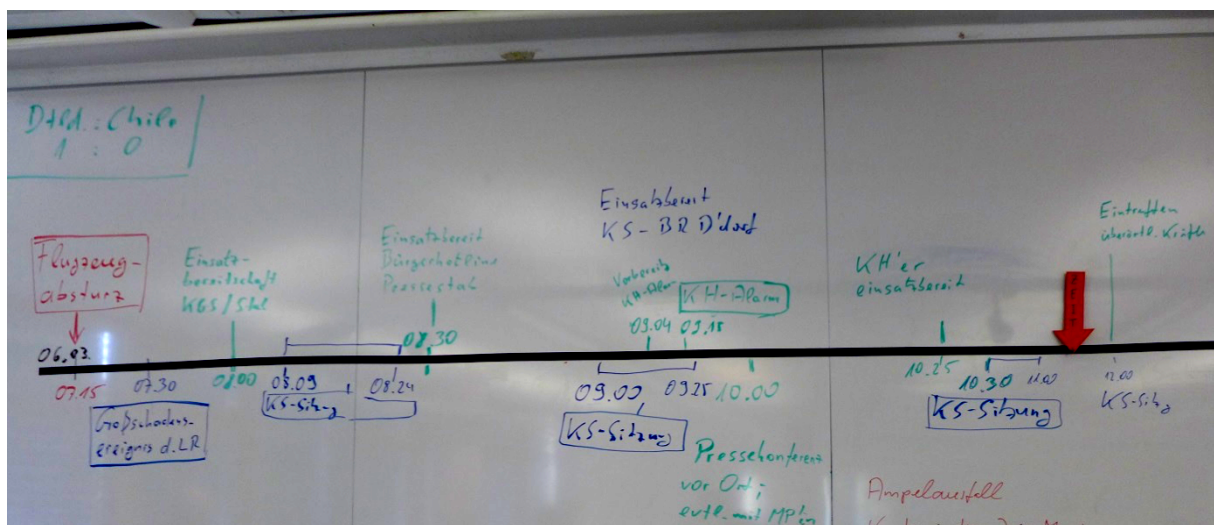 Dtld. : Chile
1 : 0
Flugzeug-
absturz
06.03.
07.15
07.30
Großschadens-
ereignis d. LR
Einsatz-
bereitschaft
KGS/Stab
08.00
08.09
08.24
KS-Sitzung
Einsatzbereit
Bürgerhotline
Pressestab
08.30
Einsatzbereit
KS-BR D'dorf
Vorbereit.
KH-Alarm
09.04
KH-Alarm
09.15
09.00
09.25
KS-Sitzung
10.00
Pressekonferenz
vor Ort;
evtl. mit MP'in
KH'er
einsatzbereit
10.25
10.30
11.00
KS-Sitzung
Eintreffen
überörtl. Kräfte
12.00
KS-Sitzg
Ampelausfall